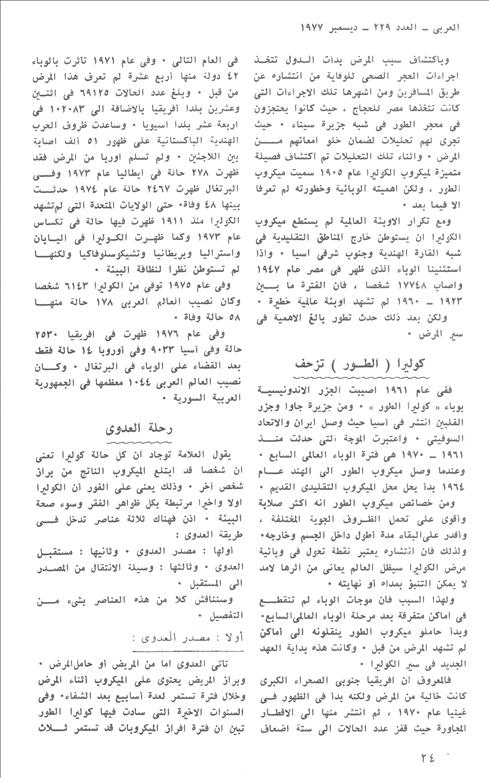 العربي ـ العدد ٢٢٩ ـ ديسمبر ١٩٧٧
وباكتشاف سبب المرض بدأت الدول تتخذ
اجراءات الحجر الصحى للوقاية من انتشاره عن
طريق المسافرين ومن اشهرها تلك الاجراءات التى
كانت تتخذها مصر للحجاج ، حيث كانوا يحتجزون
فى محجر الطور فى شبه جزيرة سيناء ٠ حيث
تجرى لهم تحليلات لضمان خلو امعائهم مـــن
المرض ٠ واثناء تلك التحليلات تم اكتشاف فصيلة
متميزة لميكروب الكوليرا عام ١٩٠٥ سميت ميكروب
الطور ، ولكن اهميته الوبائية وخطورته لم تعرفا
الا فيما بعد ٠
ومع تكرار الاوبئة العالمية لم يستطع ميكروب
الكوليرا ان يستوطن خارج المناطق التقليدية فى
شبه القارة الهندية وجنوب شرقى آسيا ٠ واذا
استثنينا الوباء الذى ظهر فى مصر عام ١٩٤٧
واصاب ١٧٧٤٨ شخصا ، فان الفترة ما بــين
١٩٢٣ ـ ١٩٦٠ لم تشهد اوبئة عالمية خطيرة ٠
ولكن بعد ذلك حدث تطور بالغ الاهمية فى
سير المرض ٠
كوليرا ( الطور ) تزحف
ففى عام ١٩٦١ اصيبت الجزر الاندونيسية
بوباء « كوليرا الطور » ٠ ومن جزيرة جاوا وجزر
الفلبين انتشر فى آسيا حيث وصل ايران والاتحاد
السوفيتى ٠ واعتبرت الموجة التى حدثت منــذ
١٩٦١ ـ ١٩٧٠ هى فترة الوباء العالمى السابع ٠
وعندما وصل ميكروب الطور الى الهند عــام
١٩٦٤ بدأ يحل محل الميكروب التقليدى القديم ٠
ومن خصائص ميكروب الطور انه اكثر صلابة
وأقوى على تحمل الظروف الجوية المختلفة ،
وأقدر على البقاء مدة أطول داخل الجسم وخارجه٠
ولذلك فان انتشاره يعتبر نقطة تحول فى وبائية
مرض الكوليرا سيظل العالم يعانى من اثرها لامد
لا يمكن التنبؤ بمداه أو نهايته ٠
ولهذا السبب فان موجات الوباء لم تنقطــع
فى اماكن متفرقة بعد مرحلة الوباء العالمى السابع٠
وبدأ حاملو ميكروب الطور ينقلونه الى أماكن
لم تشهد المرض من قبل ٠ وكانت هذه بداية العهد
الجديد فى سير الكوليرا ٠
فالمعروف ان افريقيا جنوبى الصحراء الكبرى
كانت خالية من المرض ولكنه بدأ فى الظهور فى
غينيا عام ١٩٧٠ ، ثم انتشر منها الى الاقطار
المجاورة حيث قفز عدد الحالات الى ستة اضعاف
فى العام التالى ٠ وفى عام ١٩٧١ تأثرت بالوباء
٤٢ دولة منها أربع عشرة لم تعرف هذا المرض
من قبل ٠ وبلغ عدد الحالات ٦٩١٢٥ فى اثنــين
وعشرين بلدا أفريقيا بالاضافة الى ١٠٢٠٨٣ فى
اربعة عشر بلدا اسيويا ٠ وساعدت ظروف الحرب
الهندية الباكستانية على ظهور ٥١ الف اصابة
بين اللاجئين ٠ ولم تسلم أوربا من المرض فقد
ظهرت ٢٧٨ حالة فى ايطاليا عام ١٩٧٣ وفــى
البرتغال ظهرت ٢٤٦٧ حالة عام ١٩٧٤ حدثــت
بينها ٤٨ وفاة٠ حتى الولايات المتحدة التى لم تشهد
الكوليرا منذ ١٩١١ ظهرت فيها حالة فى تكساس
عام ١٩٧٣ وكما ظهرت الكــوليرا فى اليـابان
واستراليا وبريطانيا وتشيكوسلوفاكيا ولكنهــا
لم تستوطن نظرا لنظافة البيئة ٠
وفى عام ١٩٧٥ توفى من الكوليرا ٦١٤٣ شخصا
وكان نصيب العالم العربى ١٧٨ حالة منهــا
٥٨ حالة وفاة ٠
وفى عام ١٩٧٦ ظهرت فى أفريقيا ٢٥٣٠
حالة وفى آسيا ٩٠٢٣ وفى أوروبا ١٤ حالة فقط
بعد القضاء على الوباء فى البرتغال ٠ وكــان
نصيب العالم العربى ١٠٤٤ معظمها فى الجمهورية
العربية السورية ٠
رحلة العدوى
يقول العلامة توجاد ان كل حالة كوليرا تعنى
ان شخصا قد ابتلع الميكروب الناتج من براز
شخص آخر ٠ وذلك يعنى على الفور أن الكوليرا
اولا واخيرا مرتبطة بكل ظواهر الفقر وسوء صحة
البيئة ٠ اذن فهناك ثلاثة عناصر تدخل فــى
طريقة العدوى :
اولها : مصدر العدوى ٠ وثانيها : مستقبــل
العدوى ٠ وثالثها : وسيلة الانتقال من المصــدر
الى المستقبل ٠
وسنناقش كلا من هذه العناصر بشىء مــن
التفصيل ٠
أولا : مصدر العدوى :
تأتى العدوى اما من المريض أو حامل المرض ٠
وبراز المريض يحتوى على الميكروب أثناء المرض
وخلال فترة تستمر لعدة أسابيع بعد الشفاء٠ وفى
السنوات الاخيرة التى سادت فيها كوليرا الطور
تبين ان فترة افراز الميكروبات قد تستمر ثــلاث
٢٤